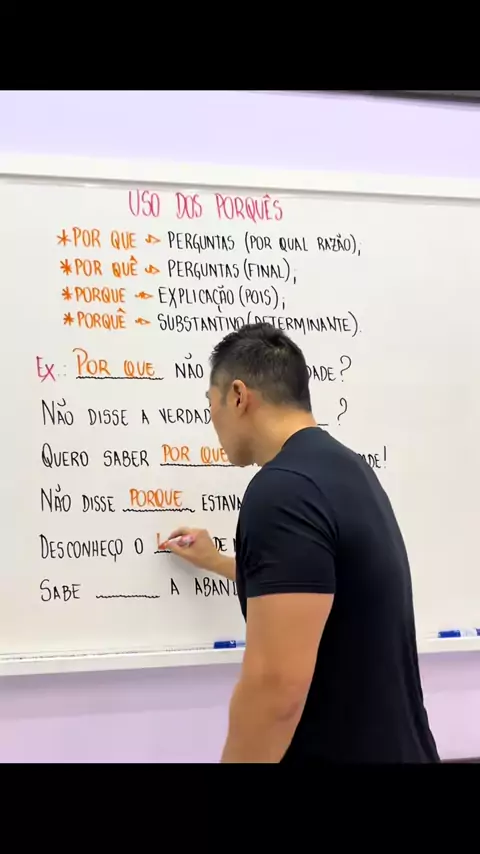 USO DOS PORQUÊS
*POR QUE → PERGUNTAS (POR QUAL RAZÃO);
*POR QUÊ → PERGUNTAS (FINAL);
*PORQUE → EXPLICAÇÃO (POIS);
*PORQUÊ → SUBSTANTIVO (DETERMINANTE).
EX.: POR QUE NÃO DADE?
NÃO DISSE A VERDAD ?
QUERO SABER POR QUE DADE!
NÃO DISSE PORQUE ESTAVA
DESCONHEÇO O DE
SABE ______ A ABAN